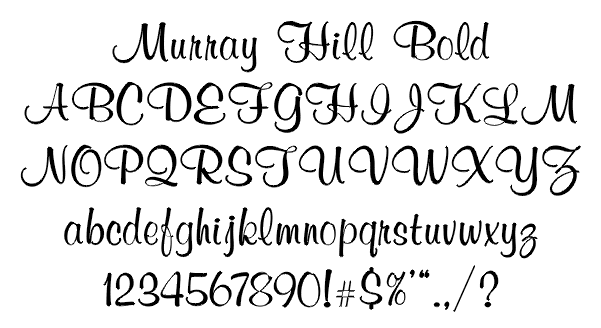 Murray Hill Bold
ABCDEFGHIJKLM
NOPQRSTUVWXYZ
abcdefghijklmnopqrstuvwxyz
1234567890!#$%'“.,/?